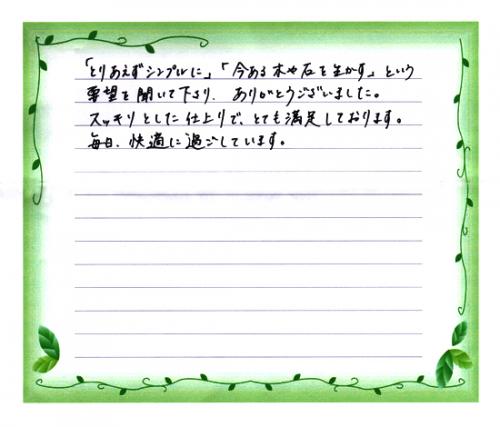 「とりあえずシンプルに」「今ある木や石を生かす」という
要望を聞いて下さり、ありがとうございました。
スッキリとした仕上りで、とても満足しております。
毎日、快適に過ごしています。